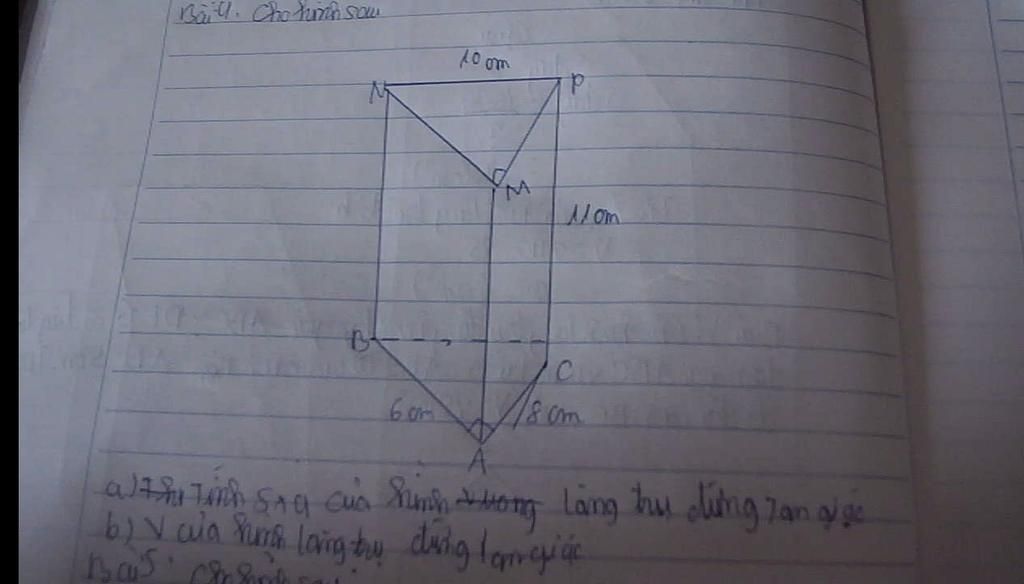 Bài 4. Cho hình sau
10 cm
N
P
M
11 cm
B
C
6 cm
8 cm
A
a) Tính Sxq của hình lăng trụ đứng tam giác
b) V của hình lăng trụ đứng tam giác
Bài 5: Cho hình sau